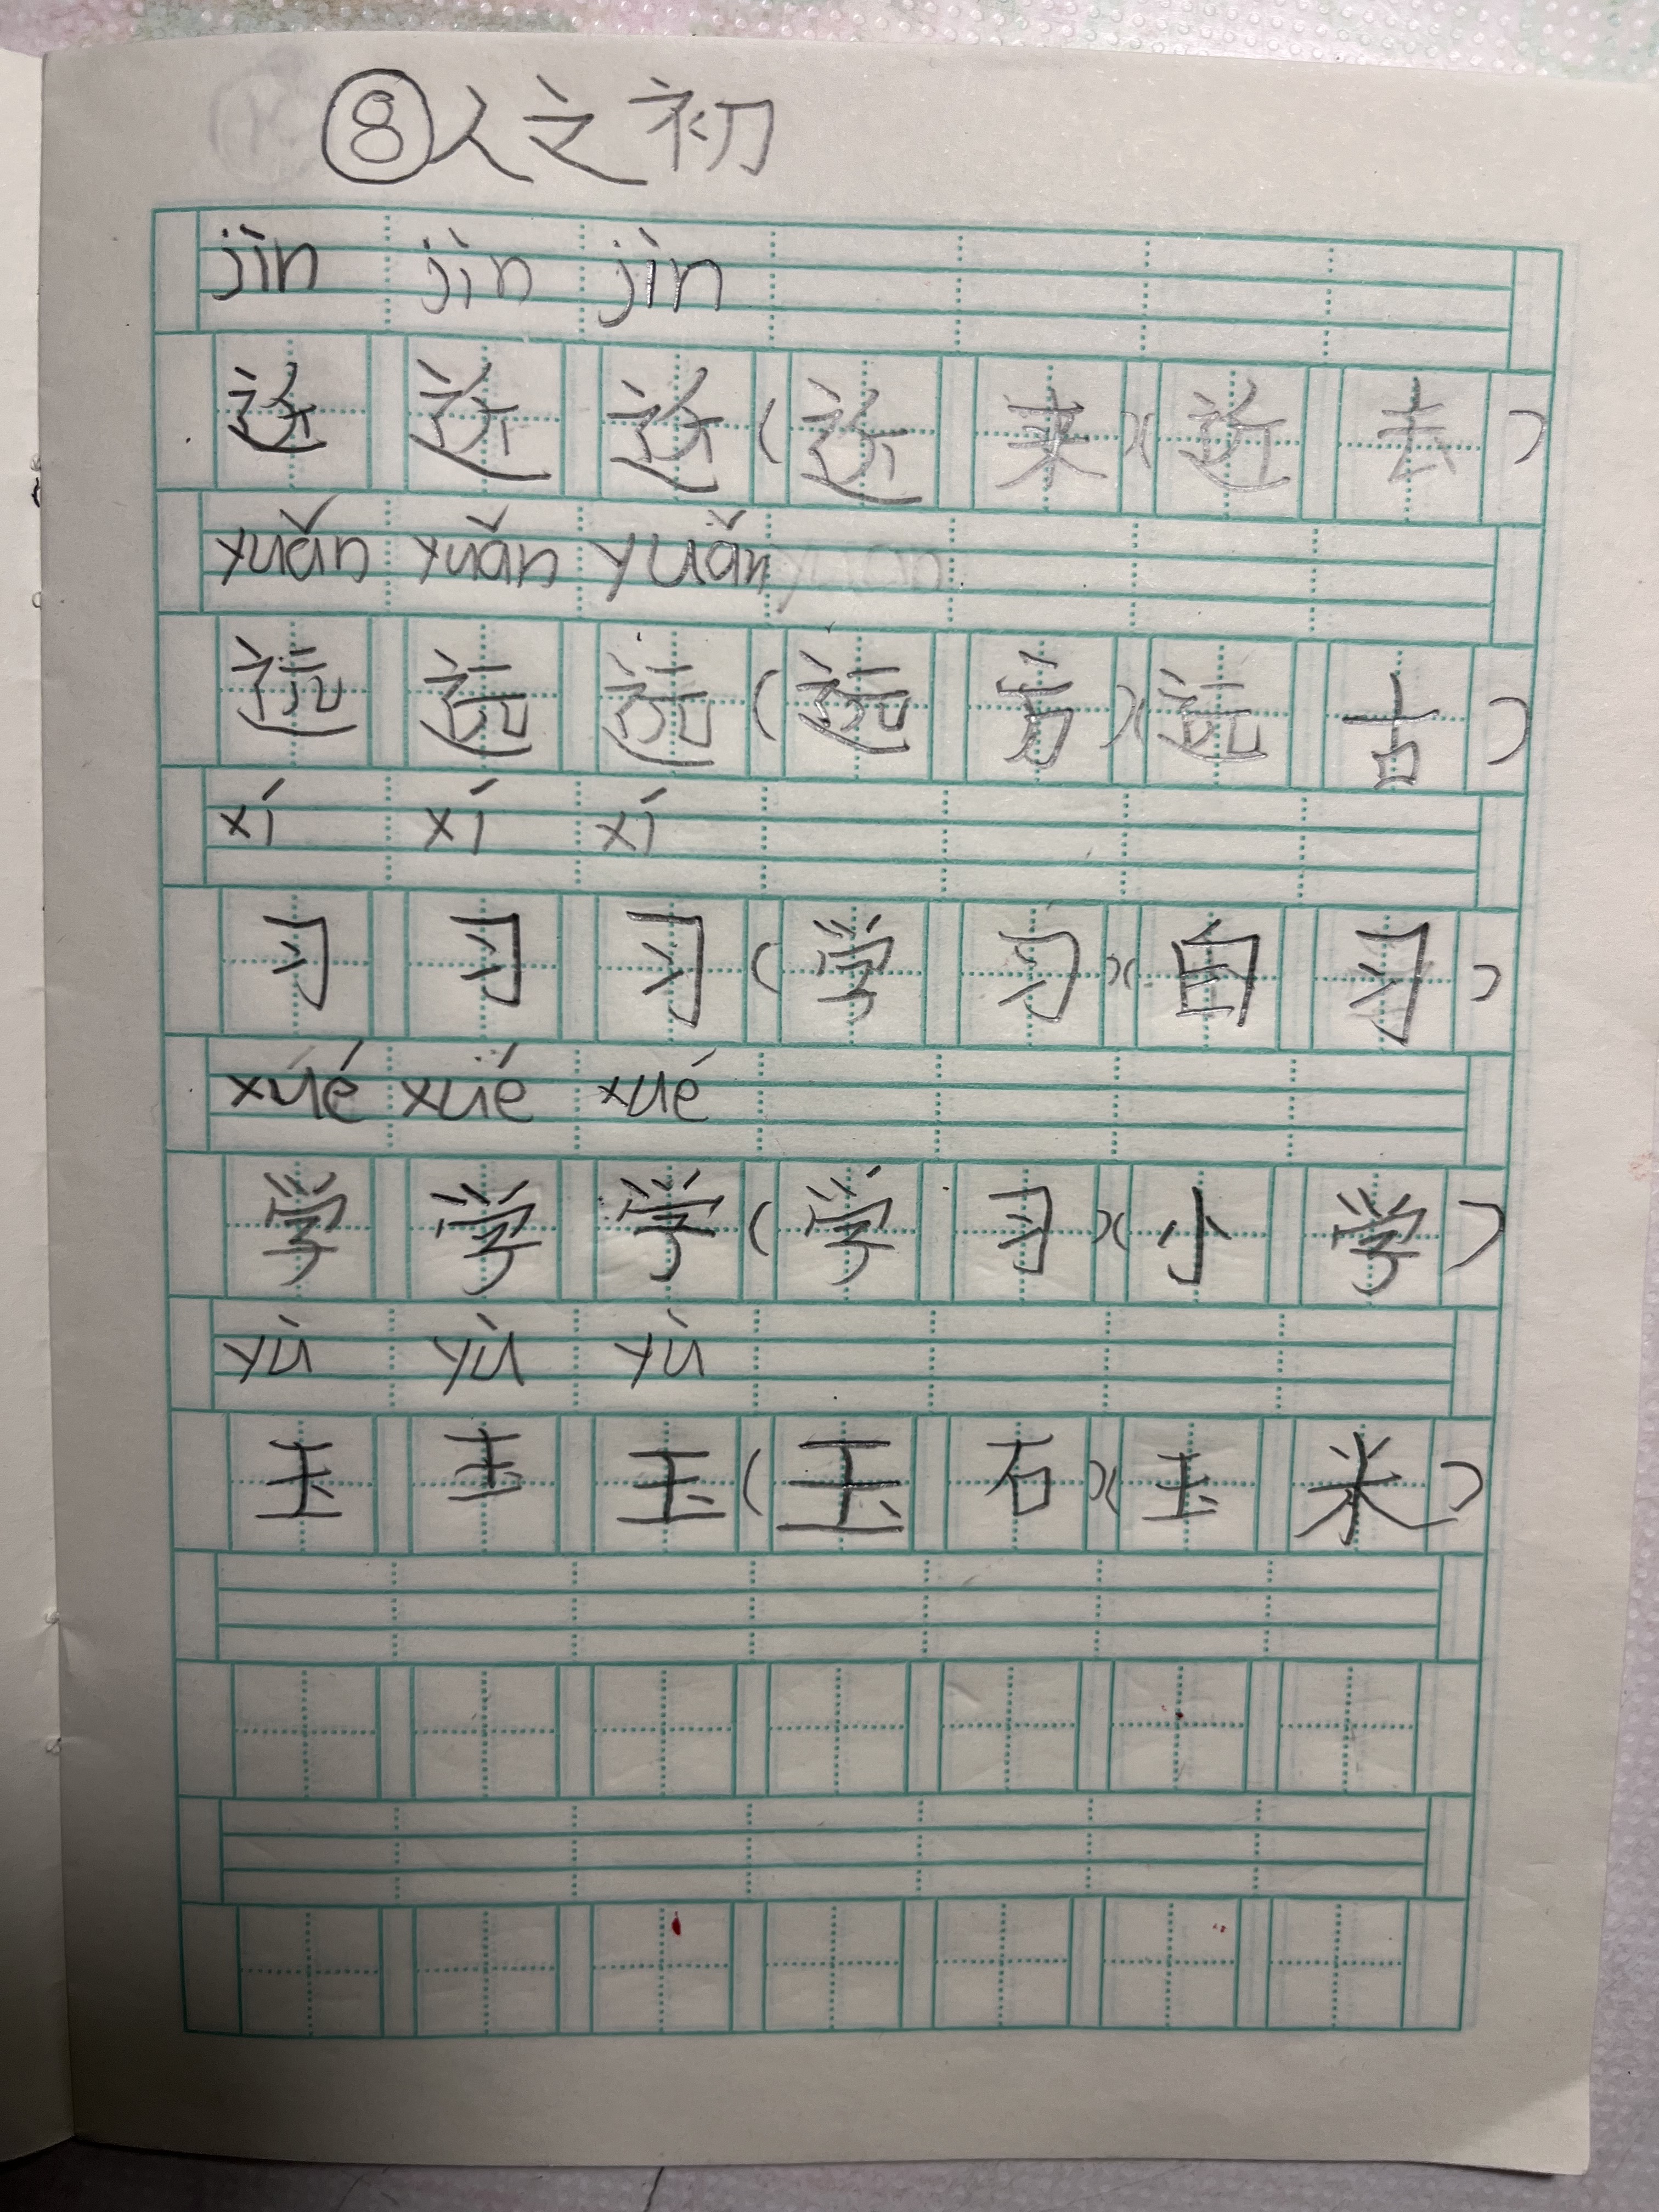 ⑧人之初
jìn jìn jìn
近 近 近（近来）（近去）
yuǎn yuǎn yuǎn
远 远 远（远方）（远古）
xí xí xí
习 习 习（学习）（自习）
xué xué xué
学 学 学（学习）（小学）
yù yù yù
玉 玉 玉（玉石）（玉米）